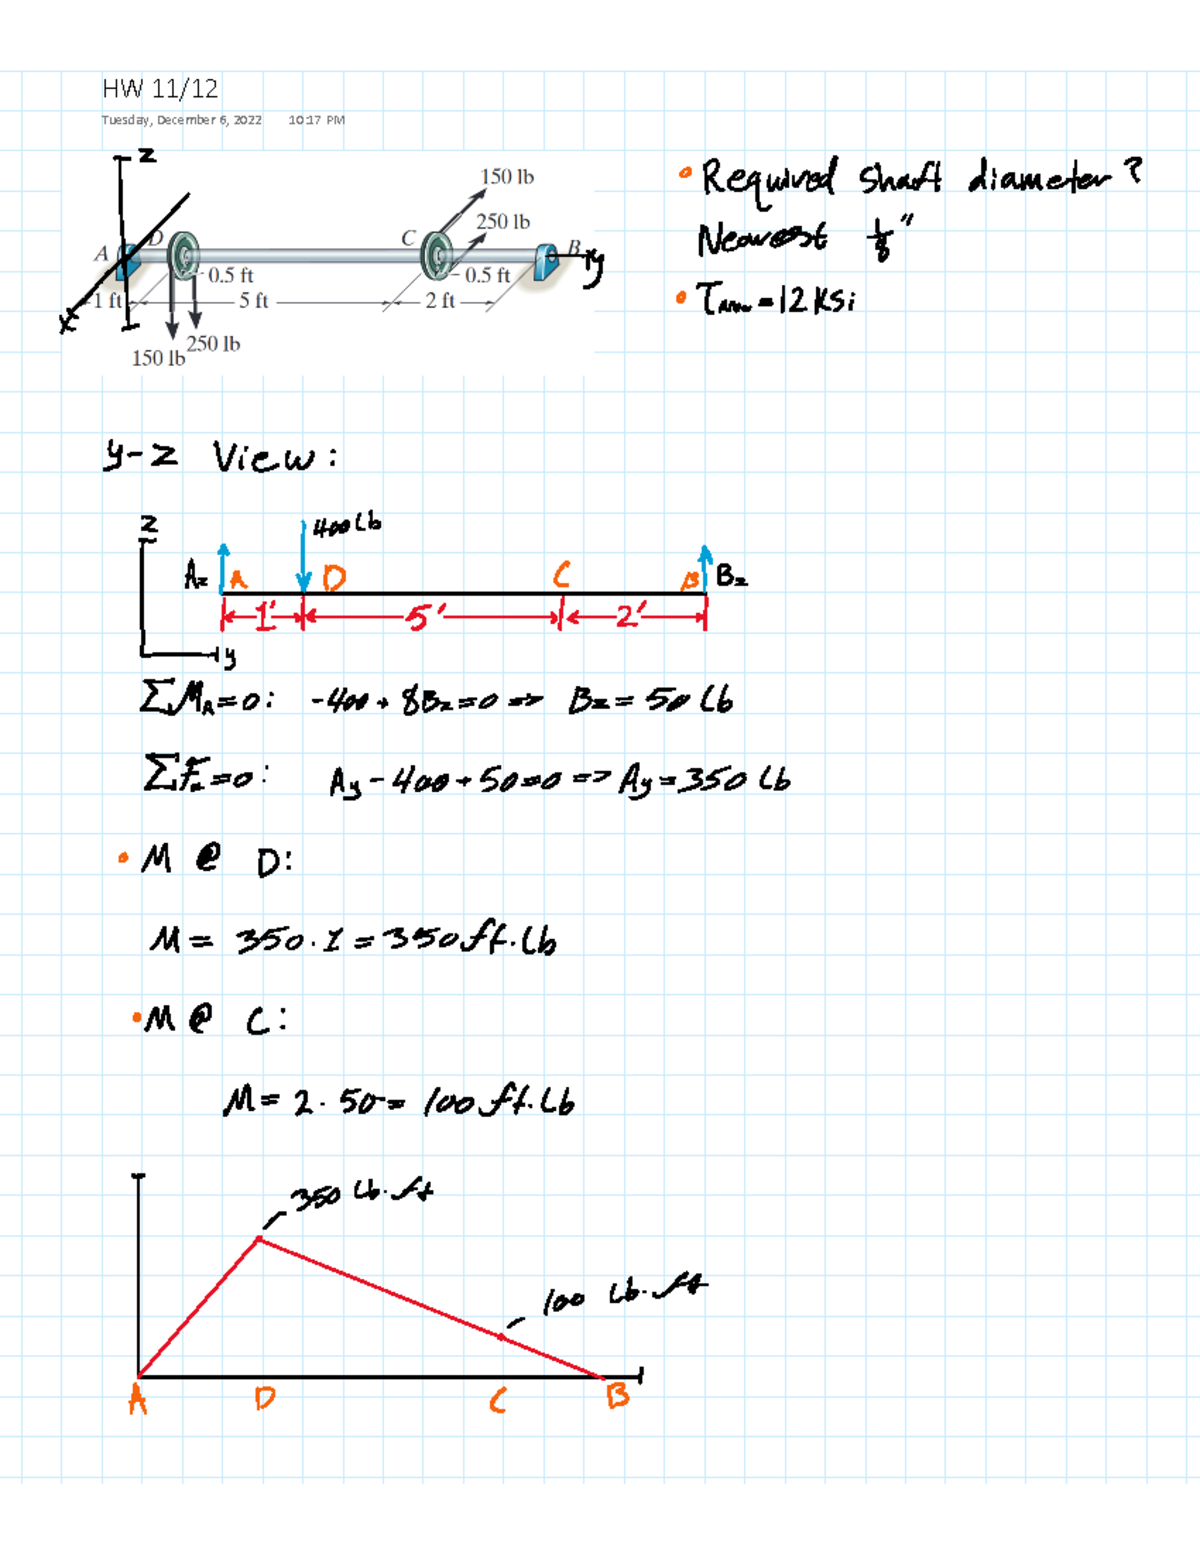 HW 11/12
Tuesday, December 6, 2022 10:17 PM
z
150 lb
250 lb
A D C B y
0.5 ft 0.5 ft
1 ft 5 ft 2 ft
x
150 lb 250 lb
• Required Shaft diameter?
Nearest 1/8"
= 12 ksi
y-z View:
z
400 Lb
Az A D C B Bz
1' 5' 2'
y
ΣMA=0: -400 + 8Bz=0 => Bz = 50 Lb
ΣFz=0: Ay - 400 + 50=0 => Ay=350 Lb
• M @ D:
M = 350·1 = 350 ft·Lb
• M @ C:
M = 2·50 = 100 ft·Lb
350 Lb·ft
100 Lb·ft
A D C B